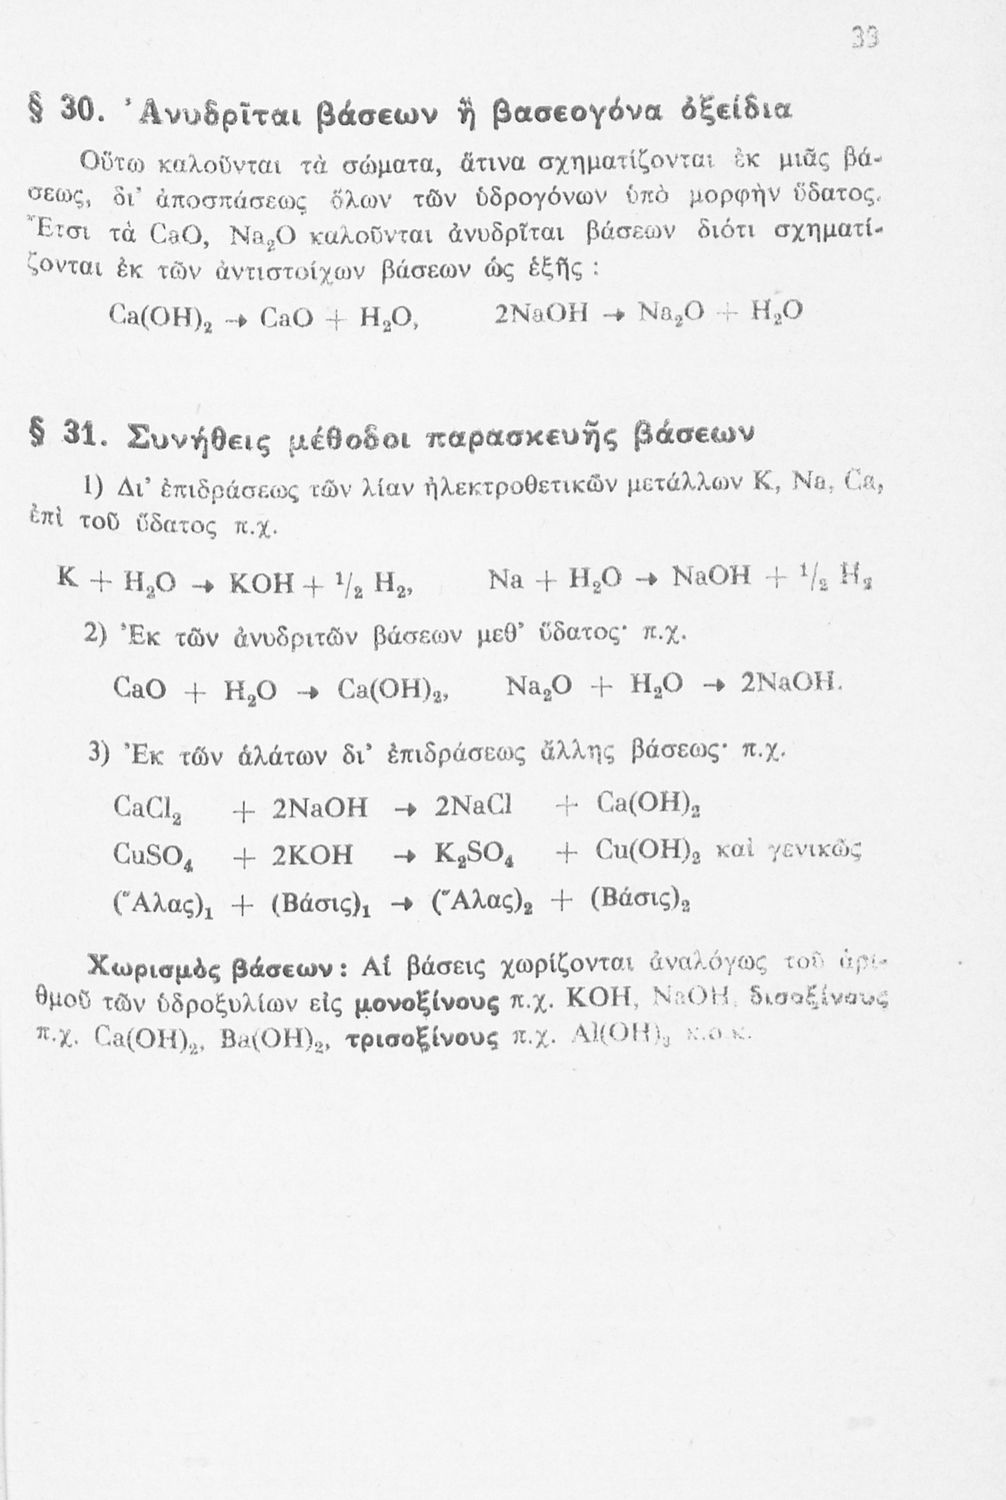 33
§ 30. Ἀνυδρῖται βάσεων ἢ βασεογόνα ὀξείδια
Οὕτω καλοῦνται τὰ σώματα, ἅτινα σχηματίζονται ἐκ μιᾶς βά-
σεως, δι’ ἀποσπάσεως ὅλων τῶν ὑδρογόνων ὑπὸ μορφὴν ὕδατος.
Ἔτσι τὰ CaO, Na₂O καλοῦνται ἀνυδρῖται βάσεων διότι σχηματί-
ζονται ἐκ τῶν ἀντιστοίχων βάσεων ὡς ἑξῆς :
Ca(OH)₂ → CaO + H₂O, 2NaOH → Na₂O + H₂O
§ 31. Συνήθεις μέθοδοι παρασκευῆς βάσεων
1) Δι’ ἐπιδράσεως τῶν λίαν ἠλεκτροθετικῶν μετάλλων K, Na, Ca,
ἐπὶ τοῦ ὕδατος π.χ.
K + H₂O → KOH + ¹/₂ H₂, Na + H₂O → NaOH + ¹/₂ H₂
2) Ἐκ τῶν ἀνυδριτῶν βάσεων μεθ’ ὕδατος· π.χ.
CaO + H₂O → Ca(OH)₂, Na₂O + H₂O → 2NaOH.
3) Ἐκ τῶν ἁλάτων δι’ ἐπιδράσεως ἄλλης βάσεως· π.χ.
CaCl₂ + 2NaOH → 2NaCl + Ca(OH)₂
CuSO₄ + 2KOH → K₂SO₄ + Cu(OH)₂ καὶ γενικῶς
(Ἅλας)₁ + (Βάσις)₁ → (Ἅλας)₂ + (Βάσις)₂
Χωρισμὸς βάσεων : Αἱ βάσεις χωρίζονται ἀναλόγως τοῦ ἀρι-
θμοῦ τῶν ὑδροξυλίων εἰς μονοξίνους π.χ. KOH, NaOH, δισοξίνους
π.χ. Ca(OH)₂, Ba(OH)₂, τρισοξίνους π.χ. Al(OH)₃ κ.ο.κ.